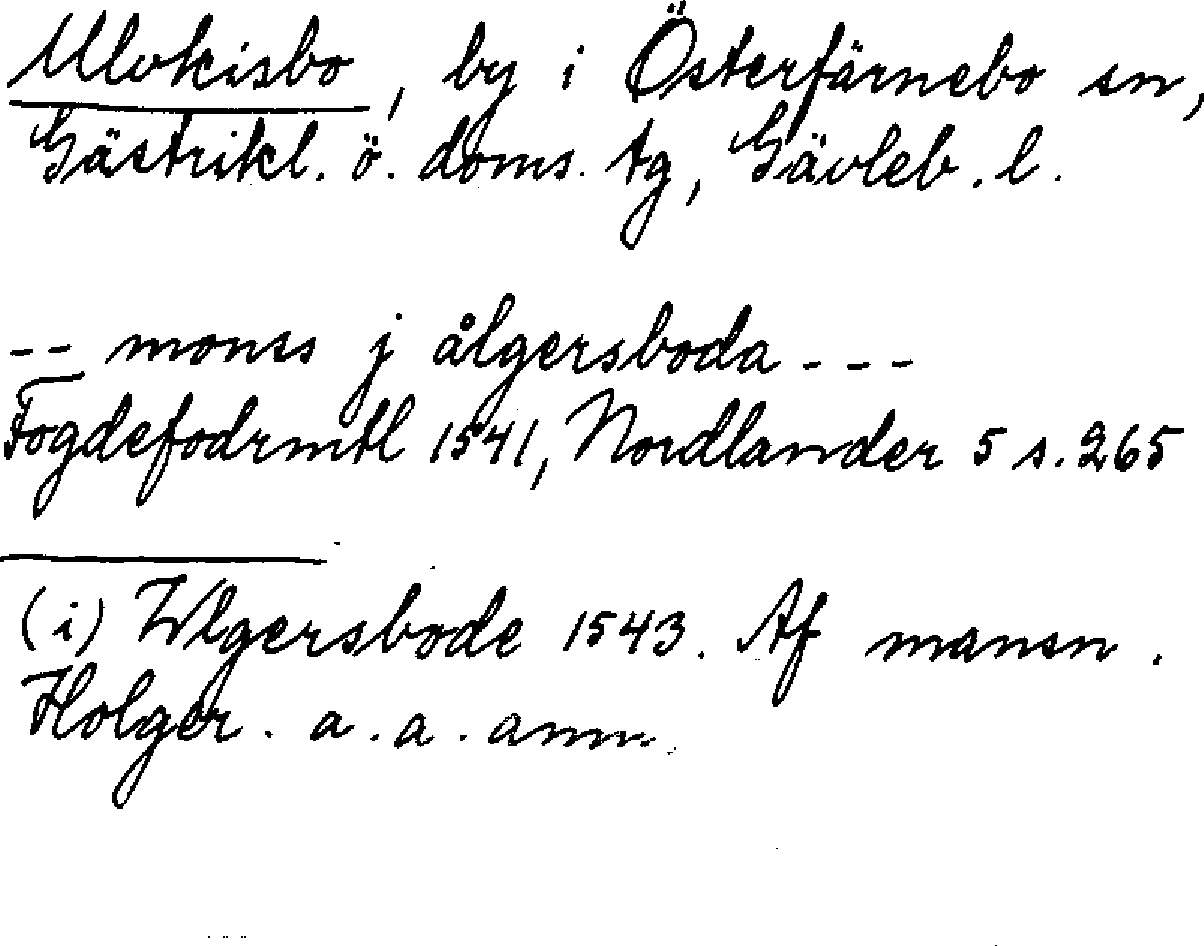 Ulvkisbo, by i Österfärnebo sn,
Gästrikl. ö. doms. tg, Gävleb. l.
-- monss j ålgersboda ---
Fogdefodrmtl 1541, Nordlander 5 s. 265
(i) Wlgersbode 1543. Af mansn.
Holger. a. a. anm.